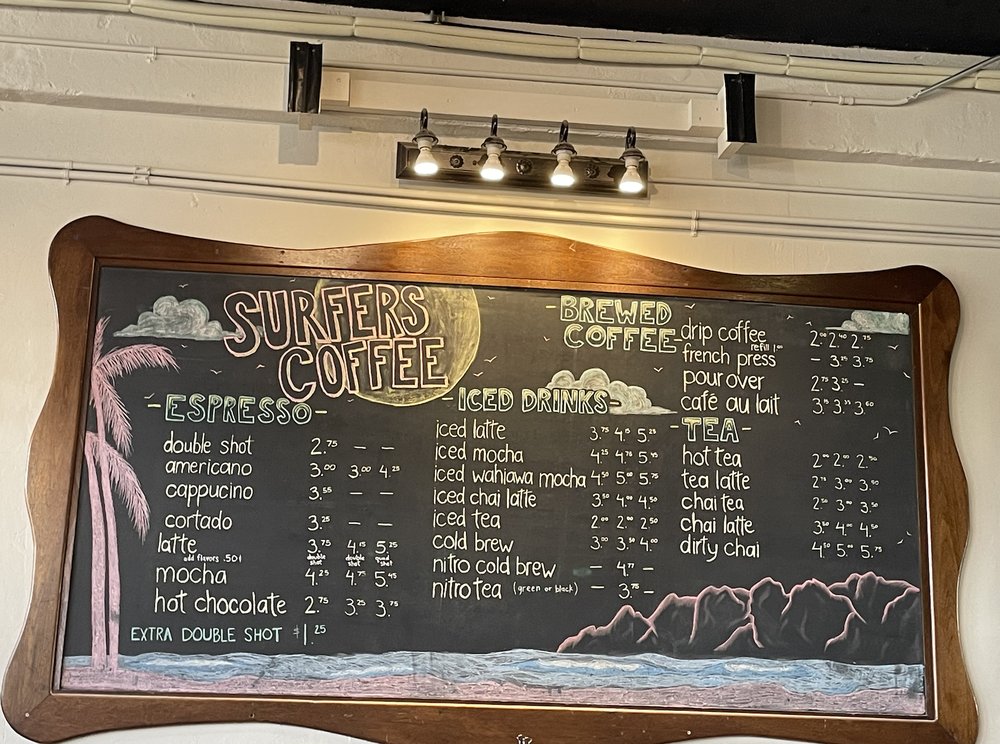 SURFERS
COFFEE
-ESPRESSO-
double shot 2.75 — —
americano 3.00 3.00 4.25
cappucino 3.55 — —
cortado 3.25 — —
latte 3.75 4.15 5.25
add flavors .50¢ double shot double shot quad shot
mocha 4.25 4.75 5.45
hot chocolate 2.75 3.25 3.75
EXTRA DOUBLE SHOT $1.25
-ICED DRINKS-
iced latte 3.75 4.15 5.25
iced mocha 4.25 4.75 5.45
iced wahiawa mocha 4.50 5.00 5.75
Iced chai latte 3.50 4.00 4.50
iced tea 2.00 2.00 2.50
cold brew 3.00 3.50 4.00
nitro cold brew — 4.77 —
nitro tea (green or black) — 3.75 —
-BREWED
COFFEE-
drip coffee 2.00 2.40 2.75
refill 1.00
french press — 3.25 3.75
pour over 2.75 3.25 —
café au lait
-TEA-
hot tea 2.00 2.00 2.50
tea latte
chai tea 2.50 3.00 3.50
chai latte 3.50 4.00 4.50
dirty chai 4.50 5.00 5.75